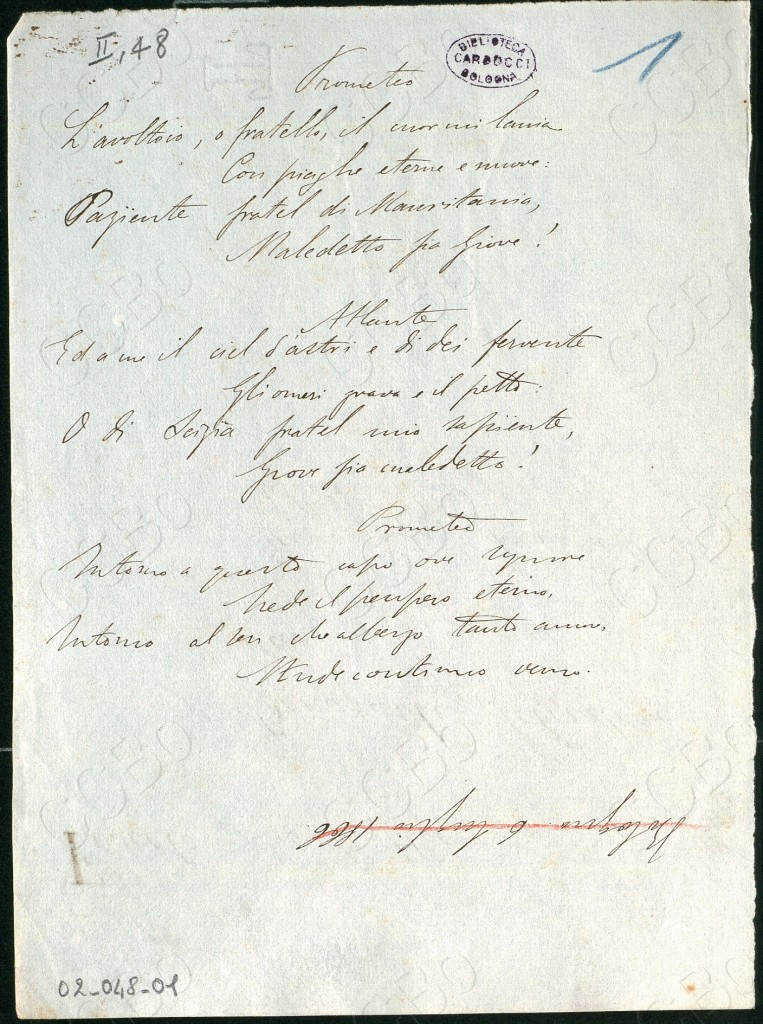 II, 48
BIBLIOTECA
CARDUCCI
BOLOGNA
1
Prometeo
L'avoltoio, o fratello, il cuor mi lania
Con piaghe eterne e nuove:
Paziente fratel di Mauritania,
Maledetto sia Giove!
Atlante
Ed a me il ciel d'astri e di dei fervente
Gli omeri grava e il petto:
O di Scizia fratel mio sapiente,
Giove sia maledetto!
Prometeo
Intorno a questo capo ove
Siede il pensiero eterno,
Intorno al sen che albergo tanto amore,
Stride continuo verno.
Bologna 6 luglio 1866
02-048-01